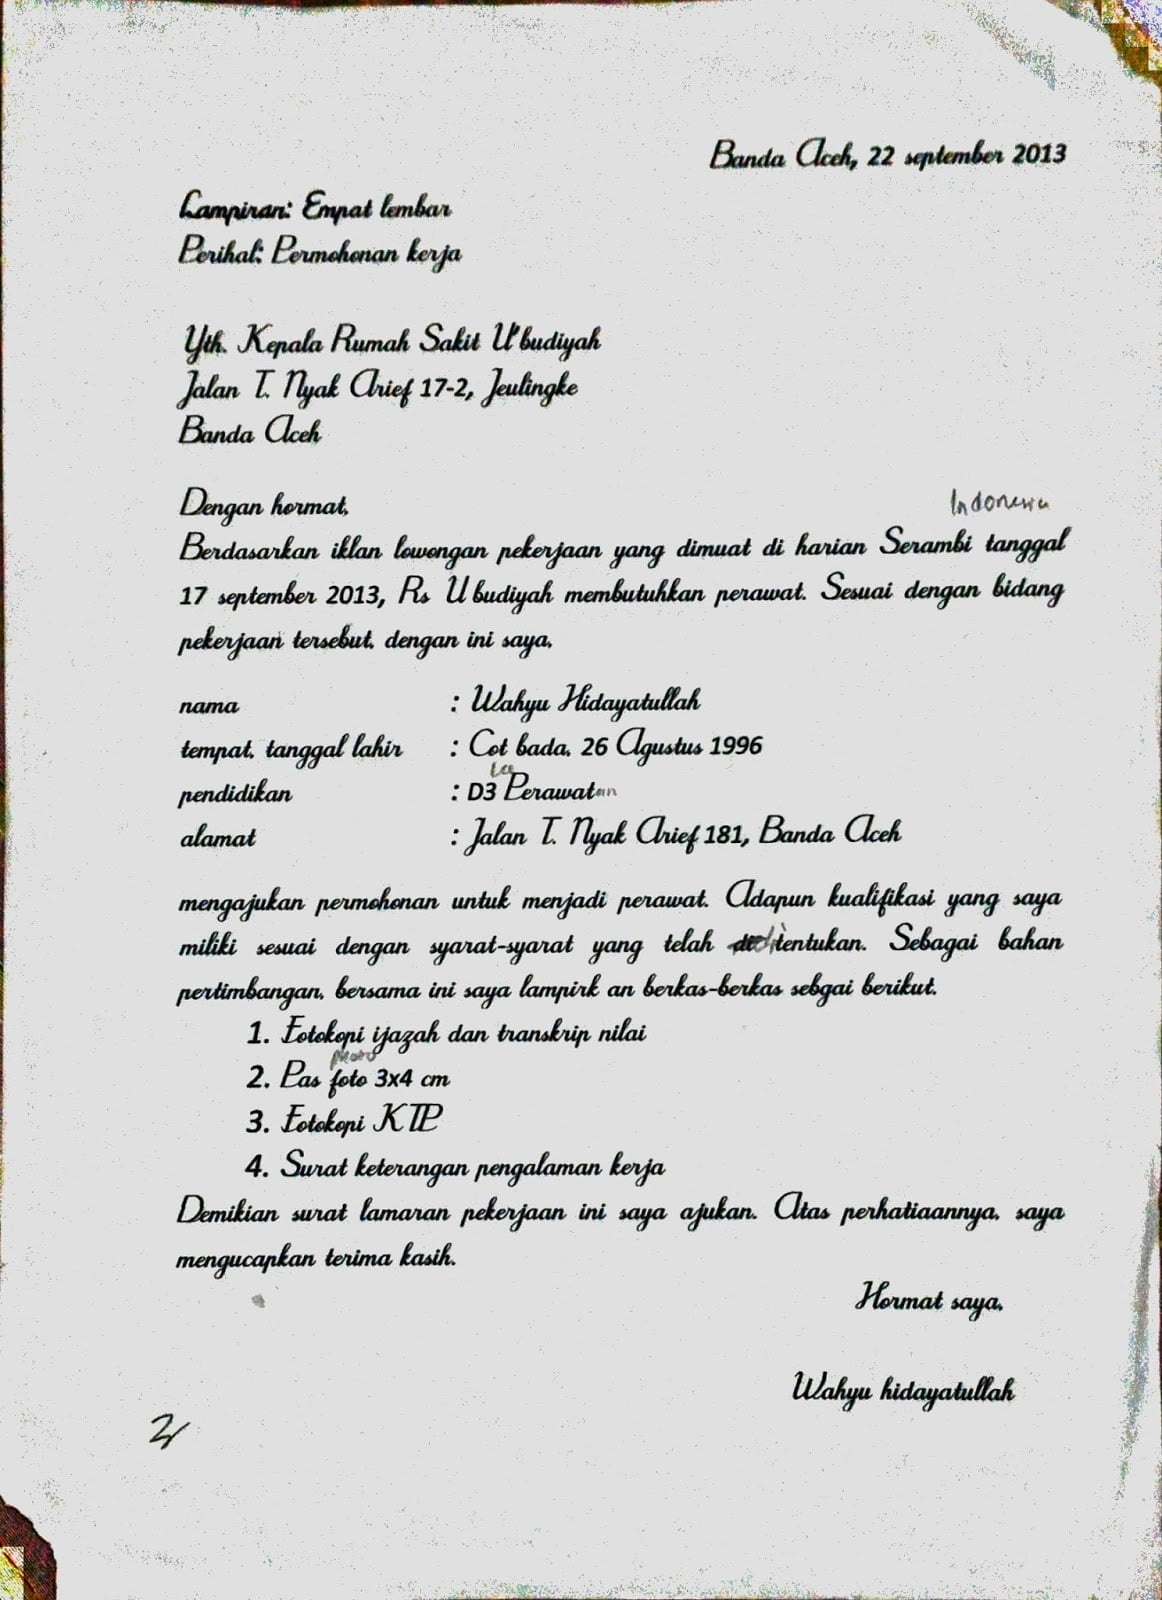 Banda Aceh, 22 september 2013
Lampiran: Empat lembar
Perihal: Permohonan kerja
Yth. Kepala Rumah Sakit U'budiyah
Jalan T. Nyak Arief 17-2, Jeulingke
Banda Aceh
Dengan hormat,
Indonesia
Berdasarkan iklan lowongan pekerjaan yang dimuat di harian Serambi tanggal
17 september 2013, Rs U budiyah membutuhkan perawat. Sesuai dengan bidang
pekerjaan tersebut, dengan ini saya,
nama : Wahyu Hidayatullah
tempat, tanggal lahir : Cot bada, 26 Agustus 1996
ke
pendidikan : D3 Perawatan
alamat : Jalan T. Nyak Arief 181, Banda Aceh
mengajukan permohonan untuk menjadi perawat. Adapun kualifikasi yang saya
miliki sesuai dengan syarat-syarat yang telah di ditentukan. Sebagai bahan
pertimbangan, bersama ini saya lampirk an berkas-berkas sebgai berikut.
1. Fotokopi ijazah dan transkrip nilai
2. Pas foto 3x4 cm
3. Fotokopi KTP
4. Surat keterangan pengalaman kerja
Demikian surat lamaran pekerjaan ini saya ajukan. Atas perhatiaannya, saya
mengucapkan terima kasih.
Hormat saya,
Wahyu hidayatullah